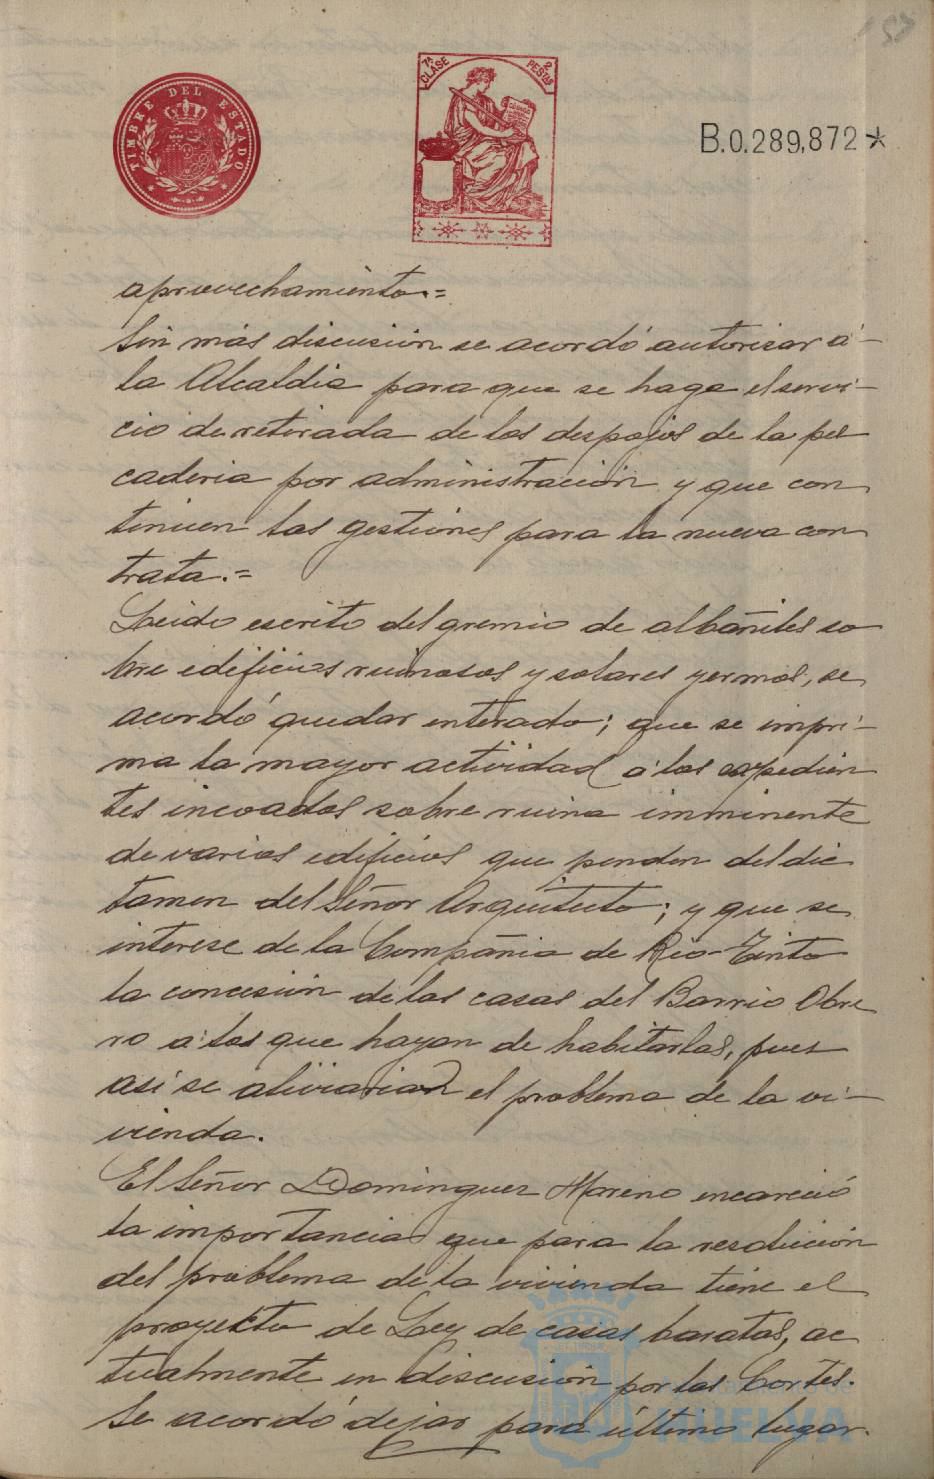 TIMBRE DEL ESTADO
7ª CLASE
2 PESTAS
B.0.289,872*
aprovechamiento.=
Sin más discusión se acordó autorizar á-
la Alcaldia para que se haga el servi-
cio de retirada de los despojos de la pes
caderia por administración y que con
tinuen las gestiones para la nueva con
trata.=
Leido escrito del gremio de albañiles so
bre edificios ruinosos y solares yermos, se
acordó quedar enterado; que se impri-
ma la mayor actividad á los expedien
tes incoados sobre ruina imminente
de varios edificios que penden del dic
tamen del Señor Arquitecto; y que se
interese de la Compañia de Rio-Tinto
la concesión de las casas del Barrio Obre
ro a los que hayan de habitarlas, pues
así se aliviarian el problema de la vi-
vienda.
El Señor Dominguez Moreno encareció
la importancia que para la resolución
del problema de la vivienda tiene el
proyecto de Ley de casas baratas, ac
tualmente en discusión por las Cortes.
Se acordó dejar para último lugar
Ayuntamiento de
HUELVA